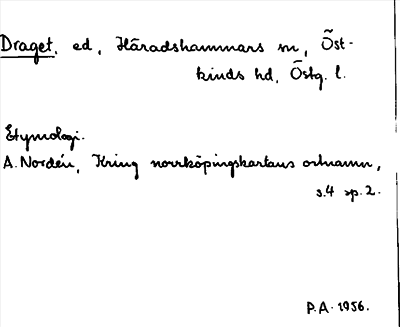 Draget, ed, Häradshammars sn, Öst-
kinds hd, Östg. l.
Etymologi.
A. Nordén, Kring norrköpingskartans ortnamn,
s.4 sp.2.
P.A. 1956.